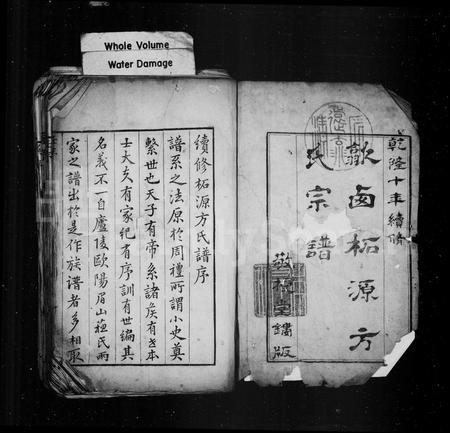 Whole Volume
Water Damage
乾隆十年續脩
歙南柘源方
氏宗譜
敬柘堂鐫版
續修柘源方氏譜序
譜系之法原於周禮所謂小史奠
繫世也天子有帝系諸矦有世本
士大夫有家紀有序訓有世編其
名義不一自廬陵歐陽眉山蘓氏兩
家之譜出於是作族譜者多相取